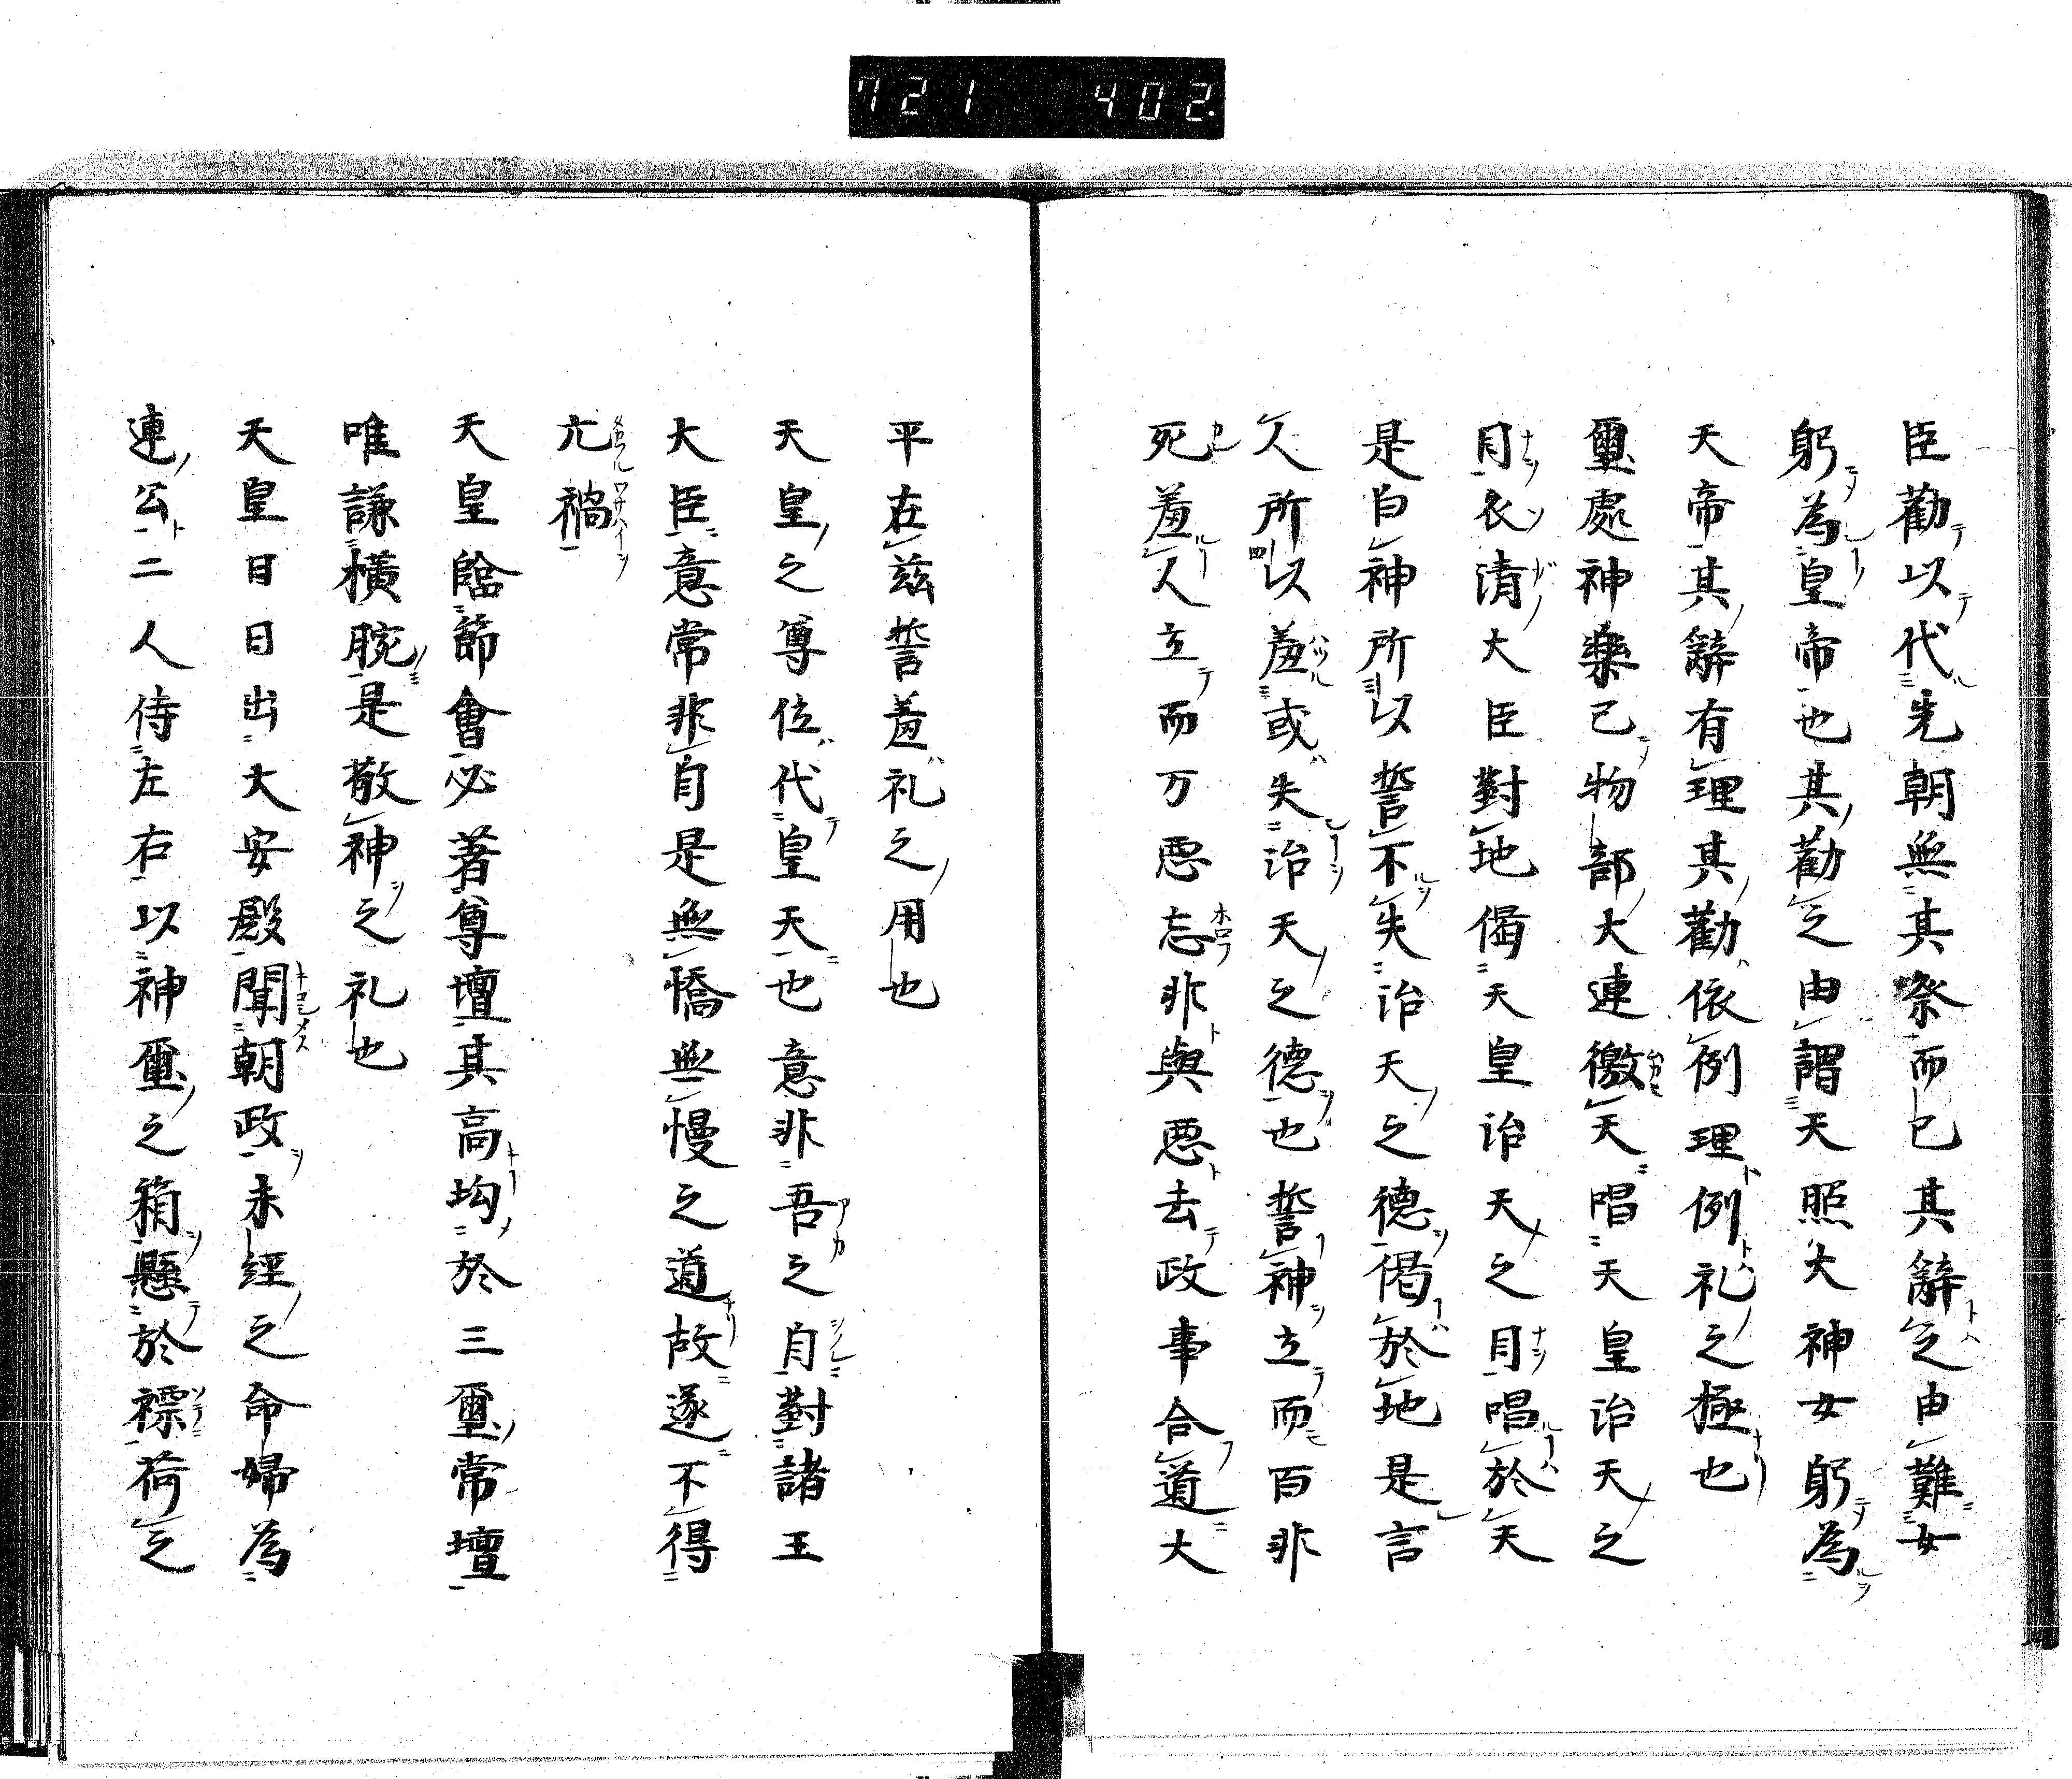 721 402.
臣勸以代先朝無其祭而已其辭之由難女
躬為皇帝也其勸之由謂天照大神女躬為
天帝其辭有理其勸依例理例礼之極也
璽處神樂已物部大連徼天唱天皇治天之
㒵衣清大臣對地偈天皇治天之㒵唱於天
是白神所以誓不失治天之德偈於地是言
人所以羞或失治天之德也誓神立而百非
死羞人立而万悪忘非與悪去政事合道大
平在茲誓羞礼之用也
天皇之尊位代皇天也意非吾之自對諸王
大臣意常非自是無憍無慢之道故遂不得
亢禍
天皇臨節會必著尊壇其高均於三璽常壇
唯謙橫腕是敬神之礼也
天皇日日出大安殿聞朝政未經之命婦為
連公二人侍左右以神璽之箱懸於褾荷之